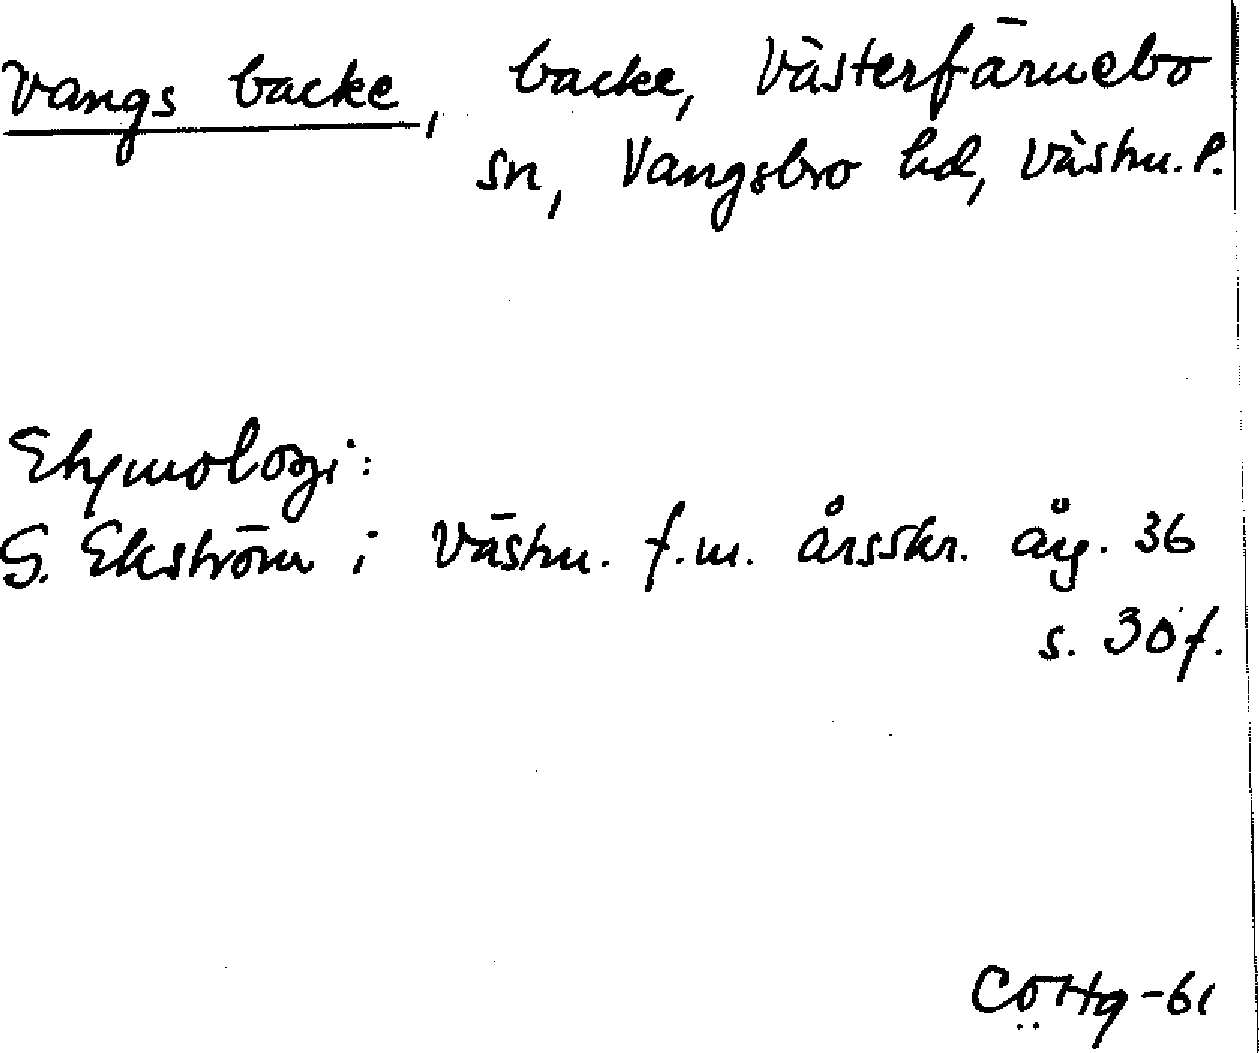 Vangs backe, backe, Västerfärnebo
sn, Vangsbro hd, Västm. l.
Etymologi:
G. Ekström i Västm. f.m. årsskr. årg. 36
s. 30 f.
CÖHg -61